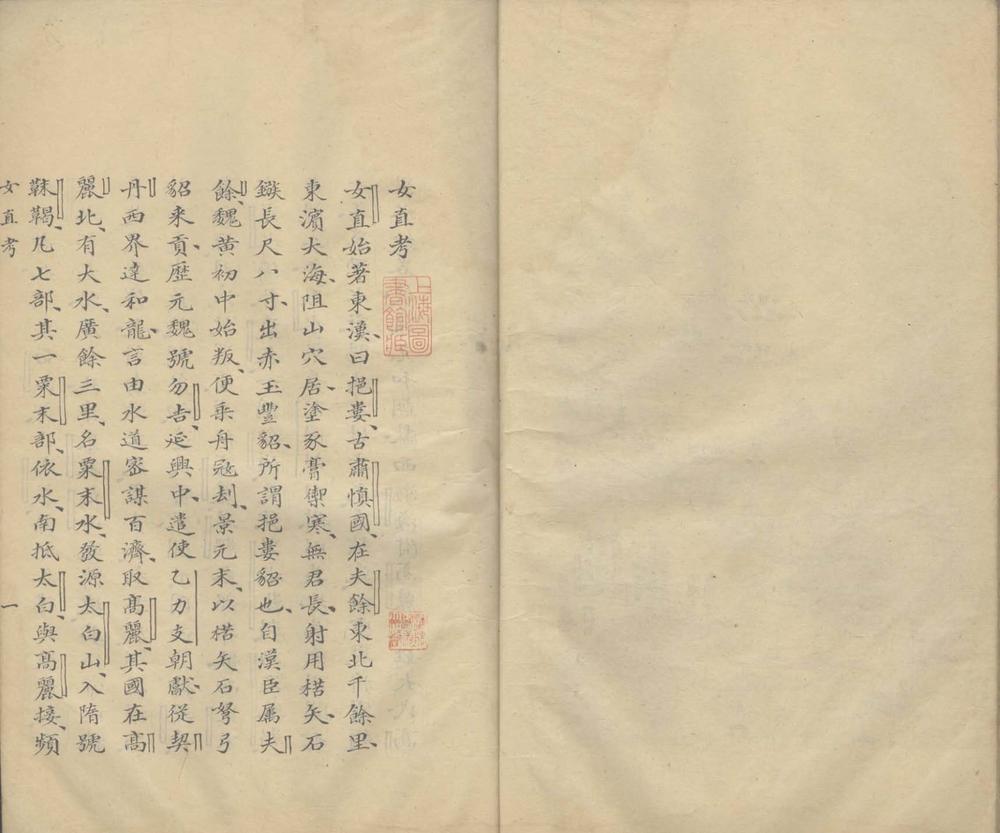 女直考
女直始著東漢曰挹婁古肅慎國在夫餘東北千餘里
東濱大海阻山穴居塗豕膏禦寒無君長射用楛矢石
鏃長尺八寸出赤玉豐貂所謂挹婁貂也自漢臣属夫
餘魏黃初中始叛便乘舟寇刦景元末以楛矢石弩弓
貂来貢歷元魏號勿吉延興中遣使乙力支朝獻從契
丹西界達和龍言由水道密謀百濟取髙麗其國在髙
麗北有大水廣餘三里名粟末水發源太白山入隋號
靺鞨凡七部其一粟末部依水南抵太白與髙麗接頻
女直考 一
上海圖書館藏